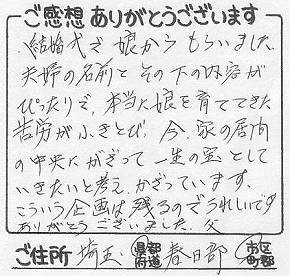 ご感想ありがとうございます
結婚式で娘からもらいました。
夫婦の名前とその下の内容が
ぴったりで、本当に娘を育ててきた
苦労がふきとび、今、家の居間
の中央にかざって一生の宝として
いきたいと考え、かざっています。
こういう企画は残るのでうれしいです
ありがとうございました。父
ご住所 埼玉 都道府県 春日部 市区町郡